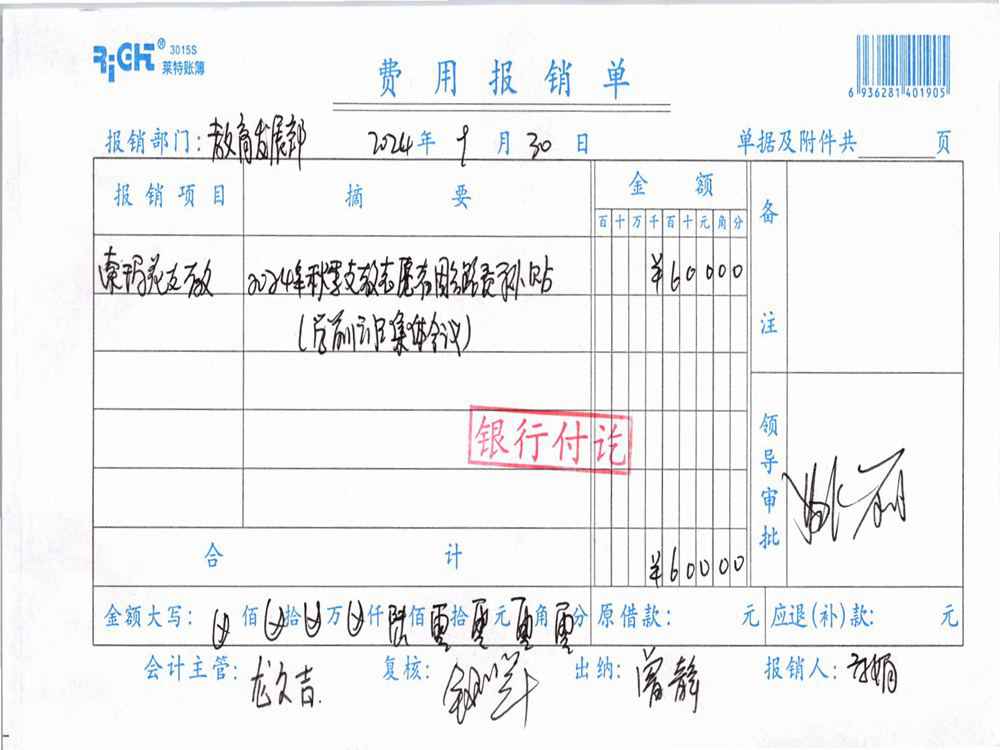 RiGHT® 3015S
莱特账簿
费用报销单
6 936281 401905
报销部门：教育发展部 2024年9月30日 单据及附件共 页
报销项目 摘要 金额 备注
百十万千百十元角分
支教 2024年秋季支教志愿者团圆路费补贴 ¥60000
(学前训及集体会议)
银行付讫
领导审批
合计 ¥60000
金额大写： 佰 拾 万 仟 陆佰 零拾 零元 零角 零分 原借款： 元 应退(补)款： 元
会计主管：龙文吉 复核： 出纳：曾静 报销人：